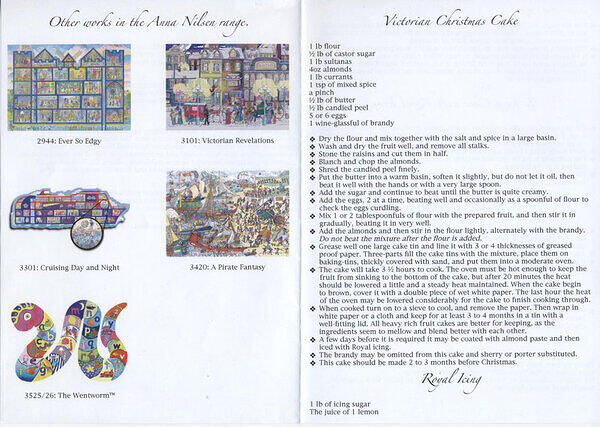 Other works in the Anna Nilsen range.
2944: Ever So Edgy
3101: Victorian Revelations
3301: Cruising Day and Night
3420: A Pirate Fantasy
3525/26: The Wentworm™
Victorian Christmas Cake
1 lb flour
½ lb of castor sugar
1 lb sultanas
4oz almonds
1 lb currants
1 tsp of mixed spice
a pinch
½ lb of butter
½ lb candied peel
5 or 6 eggs
1 wine-glassful of brandy
❖ Dry the flour and mix together with the salt and spice in a large basin.
❖ Wash and dry the fruit well, and remove all stalks.
❖ Stone the raisins and cut them in half.
❖ Blanch and chop the almonds.
❖ Shred the candied peel finely.
❖ Put the butter into a warm basin, soften it slightly, but do not let it oil, then
beat it well with the hands or with a very large spoon.
❖ Add the sugar and continue to beat until the butter is quite creamy.
❖ Add the eggs, 2 at a time, beating well and occasionally as a spoonful of flour to
check the eggs curdling.
❖ Mix 1 or 2 tablespoonfuls of flour with the prepared fruit, and then stir it in
gradually, beating it in very well.
❖ Add the almonds and then stir in the flour lightly, alternately with the brandy.
Do not beat the mixture after the flour is added.
❖ Grease well one large cake tin and line it with 3 or 4 thicknesses of greased
proof paper. Three-parts fill the cake tins with the mixture, place them on
baking-tins, thickly covered with sand, and put them into a moderate oven.
❖ The cake will take 3 ½ hours to cook. The oven must be hot enough to keep the
fruit from sinking to the bottom of the cake, but after 20 minutes the heat
should be lowered a little and a steady heat maintained. When the cake begin
to brown, cover it with a double piece of wet white paper. The last hour the heat
of the oven may be lowered considerably for the cake to finish cooking through.
❖ When cooked turn on to a sieve to cool, and remove the paper. Then wrap in
white paper or a cloth and keep for at least 3 to 4 months in a tin with a
well-fitting lid. All heavy rich fruit cakes are better for keeping, as the
ingredients seem to mellow and blend better with each other.
❖ A few days before it is required it may be coated with almond paste and then
iced with Royal icing.
❖ The brandy may be omitted from this cake and sherry or porter substituted.
❖ This cake should be made 2 to 3 months before Christmas.
Royal Icing
1 lb of icing sugar
The juice of 1 lemon